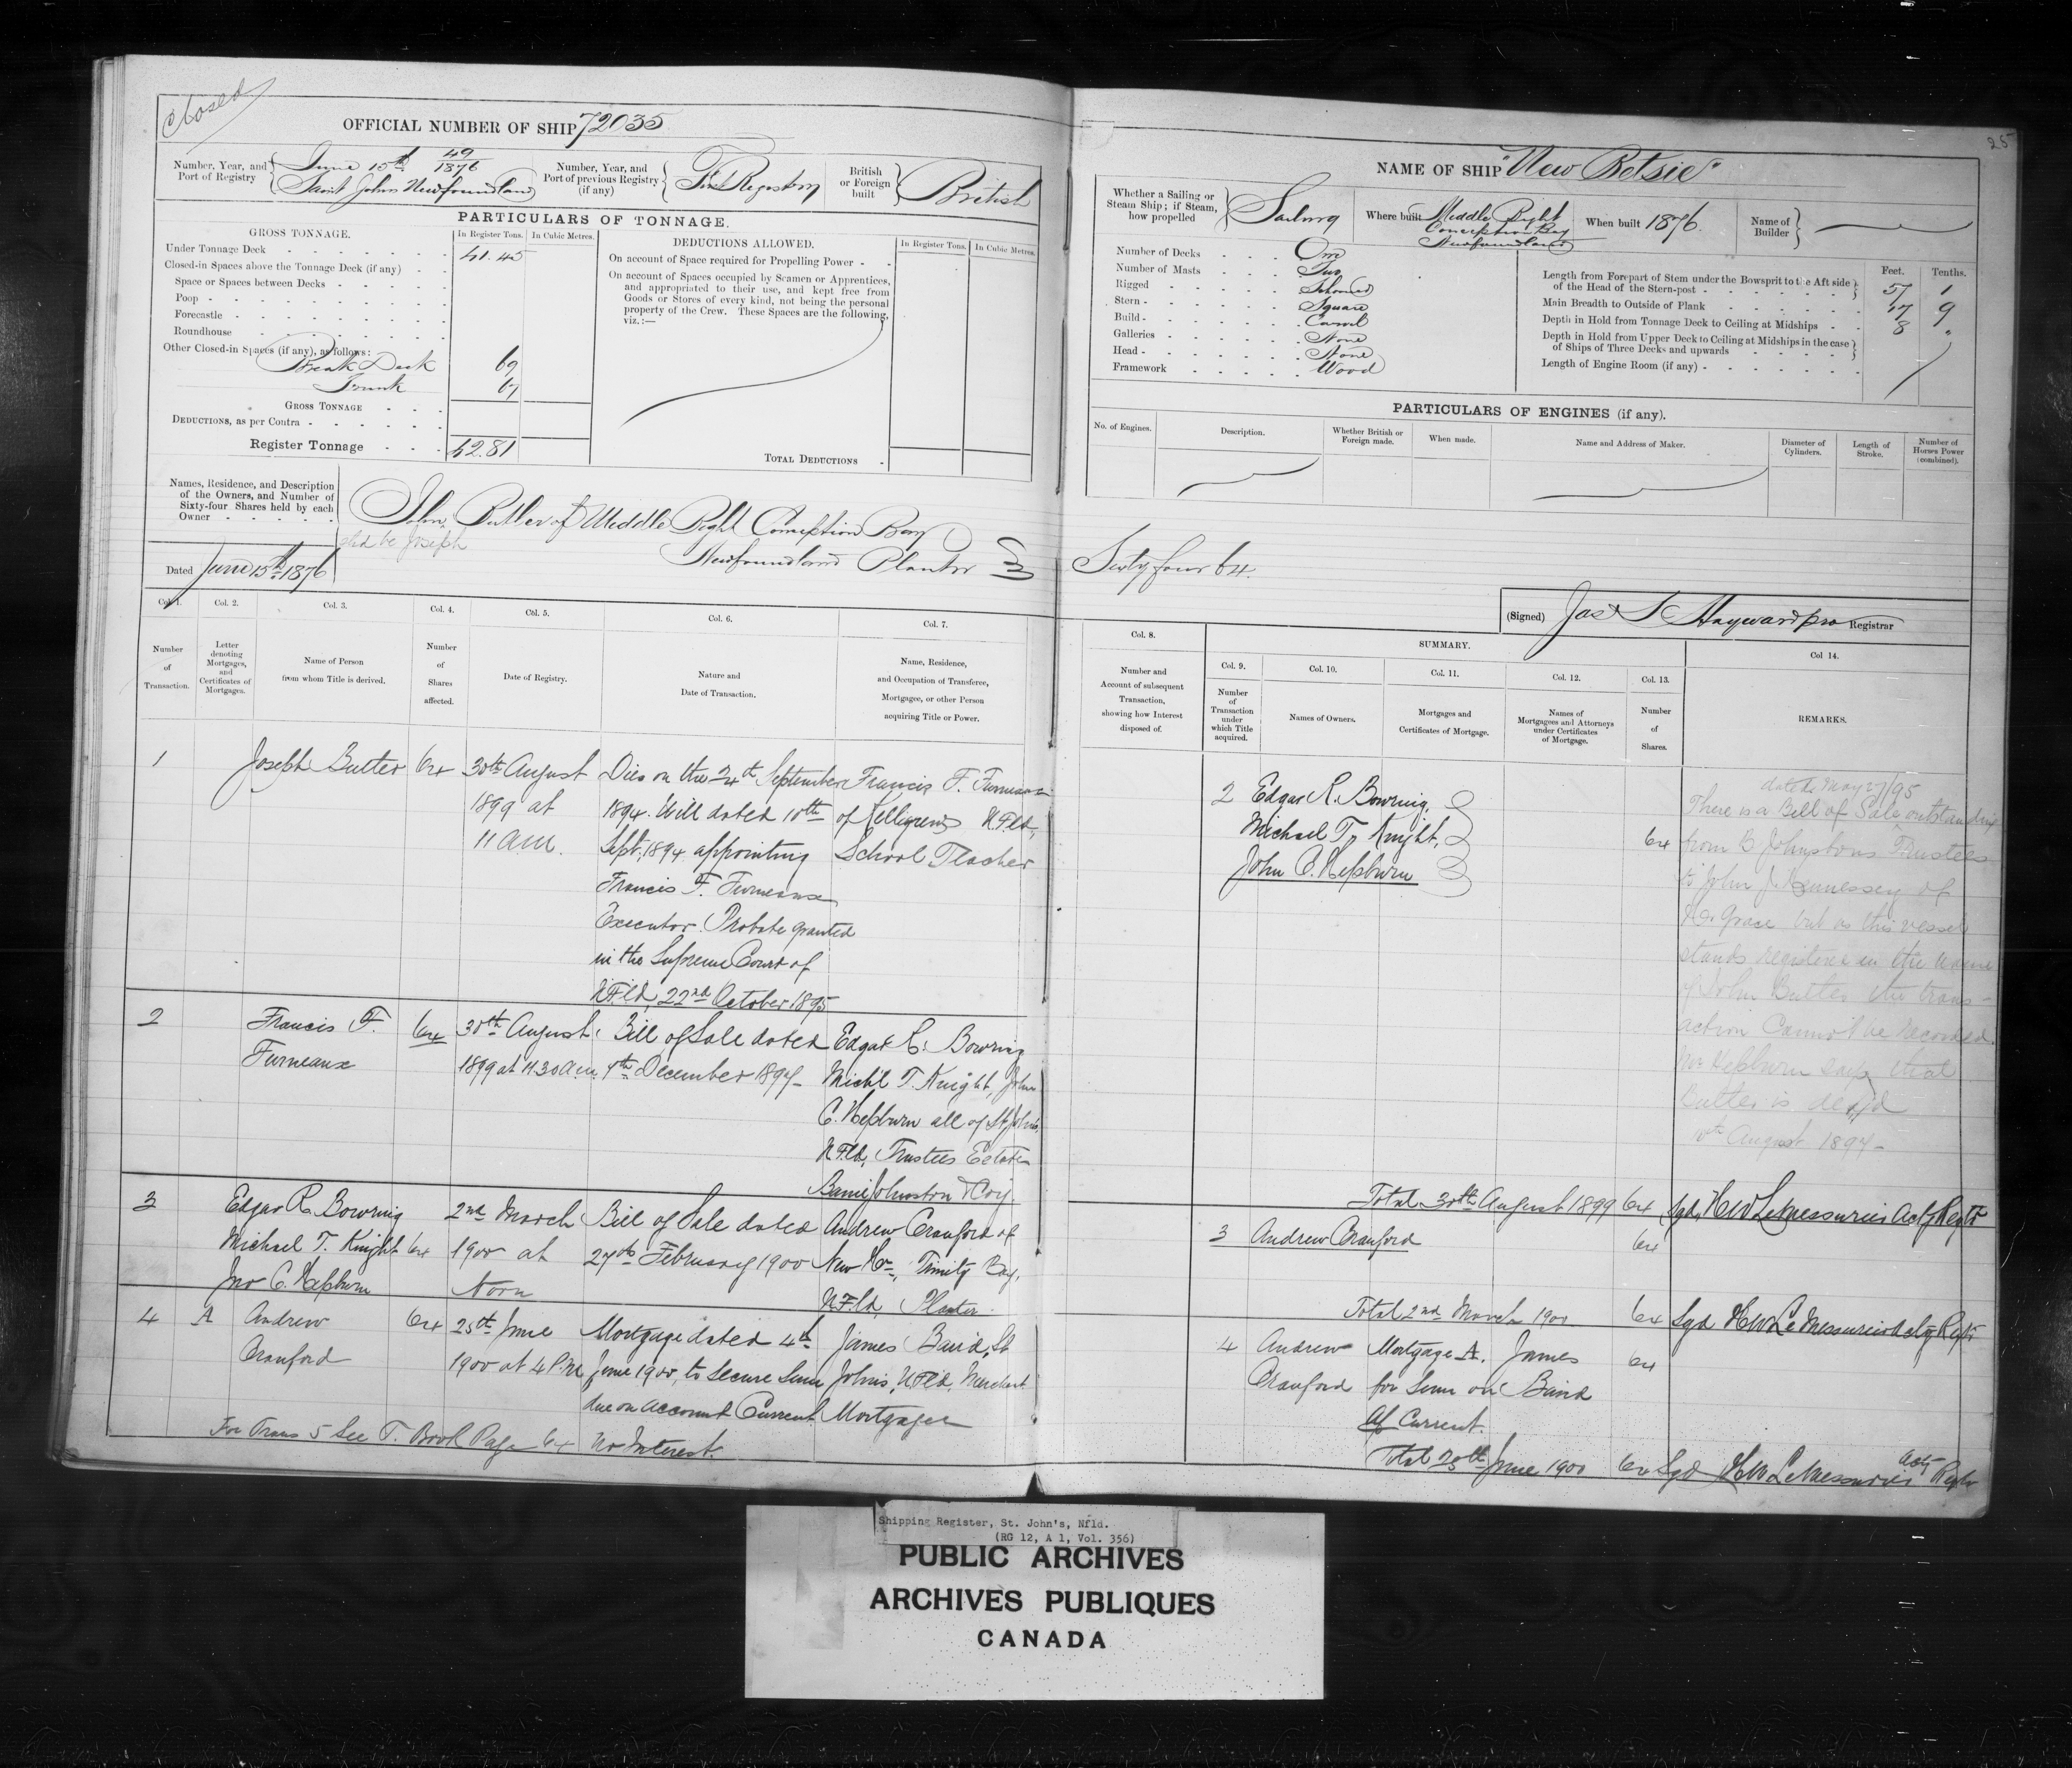 closed
OFFICIAL NUMBER OF SHIP 72035
Number, Year, and Port of Registry
June 15th 49/1876
Saint Johns Newfoundland
Number, Year, and Port of previous Registry (if any)
First Registry
British or Foreign built
British
PARTICULARS OF TONNAGE.
GROSS TONNAGE.
In Register Tons.
In Cubic Metres.
Under Tonnage Deck 41.45
Closed-in Spaces above the Tonnage Deck (if any)
Space or Spaces between Decks
Poop
Forecastle
Roundhouse
Other Closed-in Spaces (if any), as follows:
Break Deck 69
Trunk 67
GROSS TONNAGE
DEDUCTIONS, as per Contra
Register Tonnage 42.81
DEDUCTIONS ALLOWED.
In Register Tons.
In Cubic Metres.
On account of Space required for Propelling Power
On account of Spaces occupied by Seamen or Apprentices,
and appropriated to their use, and kept free from
Goods or Stores of every kind, not being the personal
property of the Crew. These Spaces are the following,
viz.:—
TOTAL DEDUCTIONS
Names, Residence, and Description
of the Owners, and Number of
Sixty-four Shares held by each
Owner
John Butler of Middle Bight Conception Bay
shd be Joseph
Newfoundland Planter
Dated June 15th 1876
Col. 1.
Col. 2.
Col. 3.
Col. 4.
Col. 5.
Col. 6.
Col. 7.
Number of Transaction.
Letter denoting Mortgages, and Certificates of Mortgages.
Name of Person from whom Title is derived.
Number of Shares affected.
Date of Registry.
Nature and Date of Transaction.
Name, Residence, and Occupation of Transferee, Mortgagee, or other Person acquiring Title or Power.
1 Joseph Butler 64 30th August Died on the 24th September Francis F. Furneaux
1899 at 1894. Will dated 10th of Kelligrews NFld,
11 AM. Sept, 1894 appointing School Teacher
Francis F. Furneaux
Executor. Probate granted
in the Supreme Court of
NFld, 22nd October 1895
2 Francis F. 64 30th August Bill of Sale dated Edgar R. Bowring
Furneaux 1899 at 11.30 a.m. December 1897 Michl T. Knight, John
C. Hepburn all of St Johns,
NFld, Trustees Estate
Barnes Johnston & Coy.
3 Edgar R Bowring 2nd March Bill of Sale dated Andrew Cranford of
Michael T. Knight 64 1900 at 27th February 1900 New Hr, Trinity Bay,
Jno C. Hepburn Noon NFld, Planter.
4 A Andrew 64 25th June Mortgage dated 4th James Baird, St
Cranford 1900 at 4 P.M. June 1900, to secure Sum Johns, NFld, Merchant
due on Account Current Mortgagee
For Trans 5 See T. Book Page 64 No Interest.
25
NAME OF SHIP "New Betsie"
Whether a Sailing or Steam Ship; if Steam, how propelled
Sailing
Where built
Middle Bight
Conception Bay
Newfoundland
When built 1876.
Name of Builder
Number of Decks One
Number of Masts Two
Rigged Schooner
Stern Square
Build Carvel
Galleries None
Head None
Framework Wood
Feet.
Tenths.
Length from Forepart of Stem under the Bowsprit to the Aft side of the Head of the Stern-post 57 1
Main Breadth to Outside of Plank 17 9
Depth in Hold from Tonnage Deck to Ceiling at Midships 8 "
Depth in Hold from Upper Deck to Ceiling at Midships in the case of Ships of Three Decks and upwards
Length of Engine Room (if any)
PARTICULARS OF ENGINES (if any).
No. of Engines.
Description.
Whether British or Foreign made.
When made.
Name and Address of Maker.
Diameter of Cylinders.
Length of Stroke.
Number of Horses Power (combined).
Sixty four 64.
(Signed) Jas S Hayward pro Registrar
Col. 8.
SUMMARY.
Col. 9.
Col. 10.
Col. 11.
Col. 12.
Col. 13.
Col 14.
Number and Account of subsequent Transaction, showing how Interest disposed of.
Number of Transaction under which Title acquired.
Names of Owners.
Mortgages and Certificates of Mortgage.
Names of Mortgagees and Attorneys under Certificates of Mortgage.
Number of Shares.
REMARKS.
2 Edgar R. Bowring,
Michael T. Knight, 64
John C. Hepburn
dated May 27/95
There is a Bill of Sale outstanding
from B Johnstons Trustees
to John J Hennessey of
Hr Grace but as this vessel
stands registered in the name
of John Butler the trans-
action Cannot be recorded.
Mr Hepburn says that
Butler is dead
10th August 1897
Total 30th August 1899 64 Sgd, HW LeMessurier Actg Regtr
3 Andrew Cranford 64
Total 2nd March 1900 64 Sgd HW LeMessurier Actg Regtr
4 Andrew Mortgage A. James 64
Cranford for Sum on Baird
A/c Current.
Total 25th June 1900 64 Sgd HW LeMessurier Actg Regtr
Shipping Register, St. John's, Nfld.
(RG 12, A 1, Vol. 356)
PUBLIC ARCHIVES
ARCHIVES PUBLIQUES
CANADA